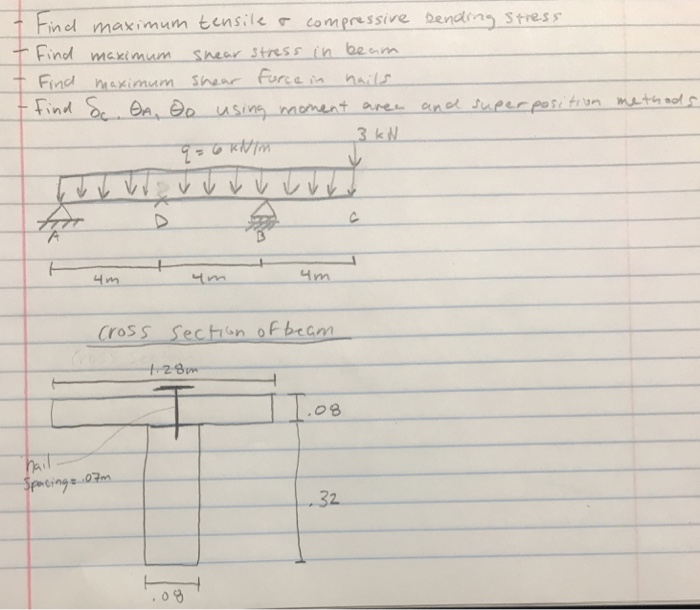 - Find maximum tensile & compressive bending stress
- Find maximum shear stress in beam
- Find maximum shear force in nails
- Find δc, θA, θD using moment area and superposition methods
3 kN
q = 6 kN/m
A
D
B
C
4m
4m
4m
Cross section of beam
1.28m
.08
nail
spacing = .07m
.32
.08